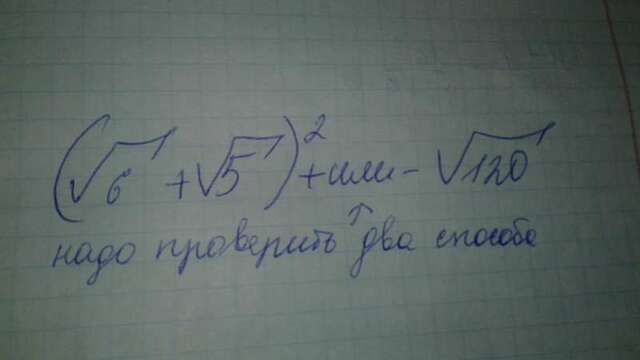 (√6 + √5)² + или - √120
надо проверить два способа